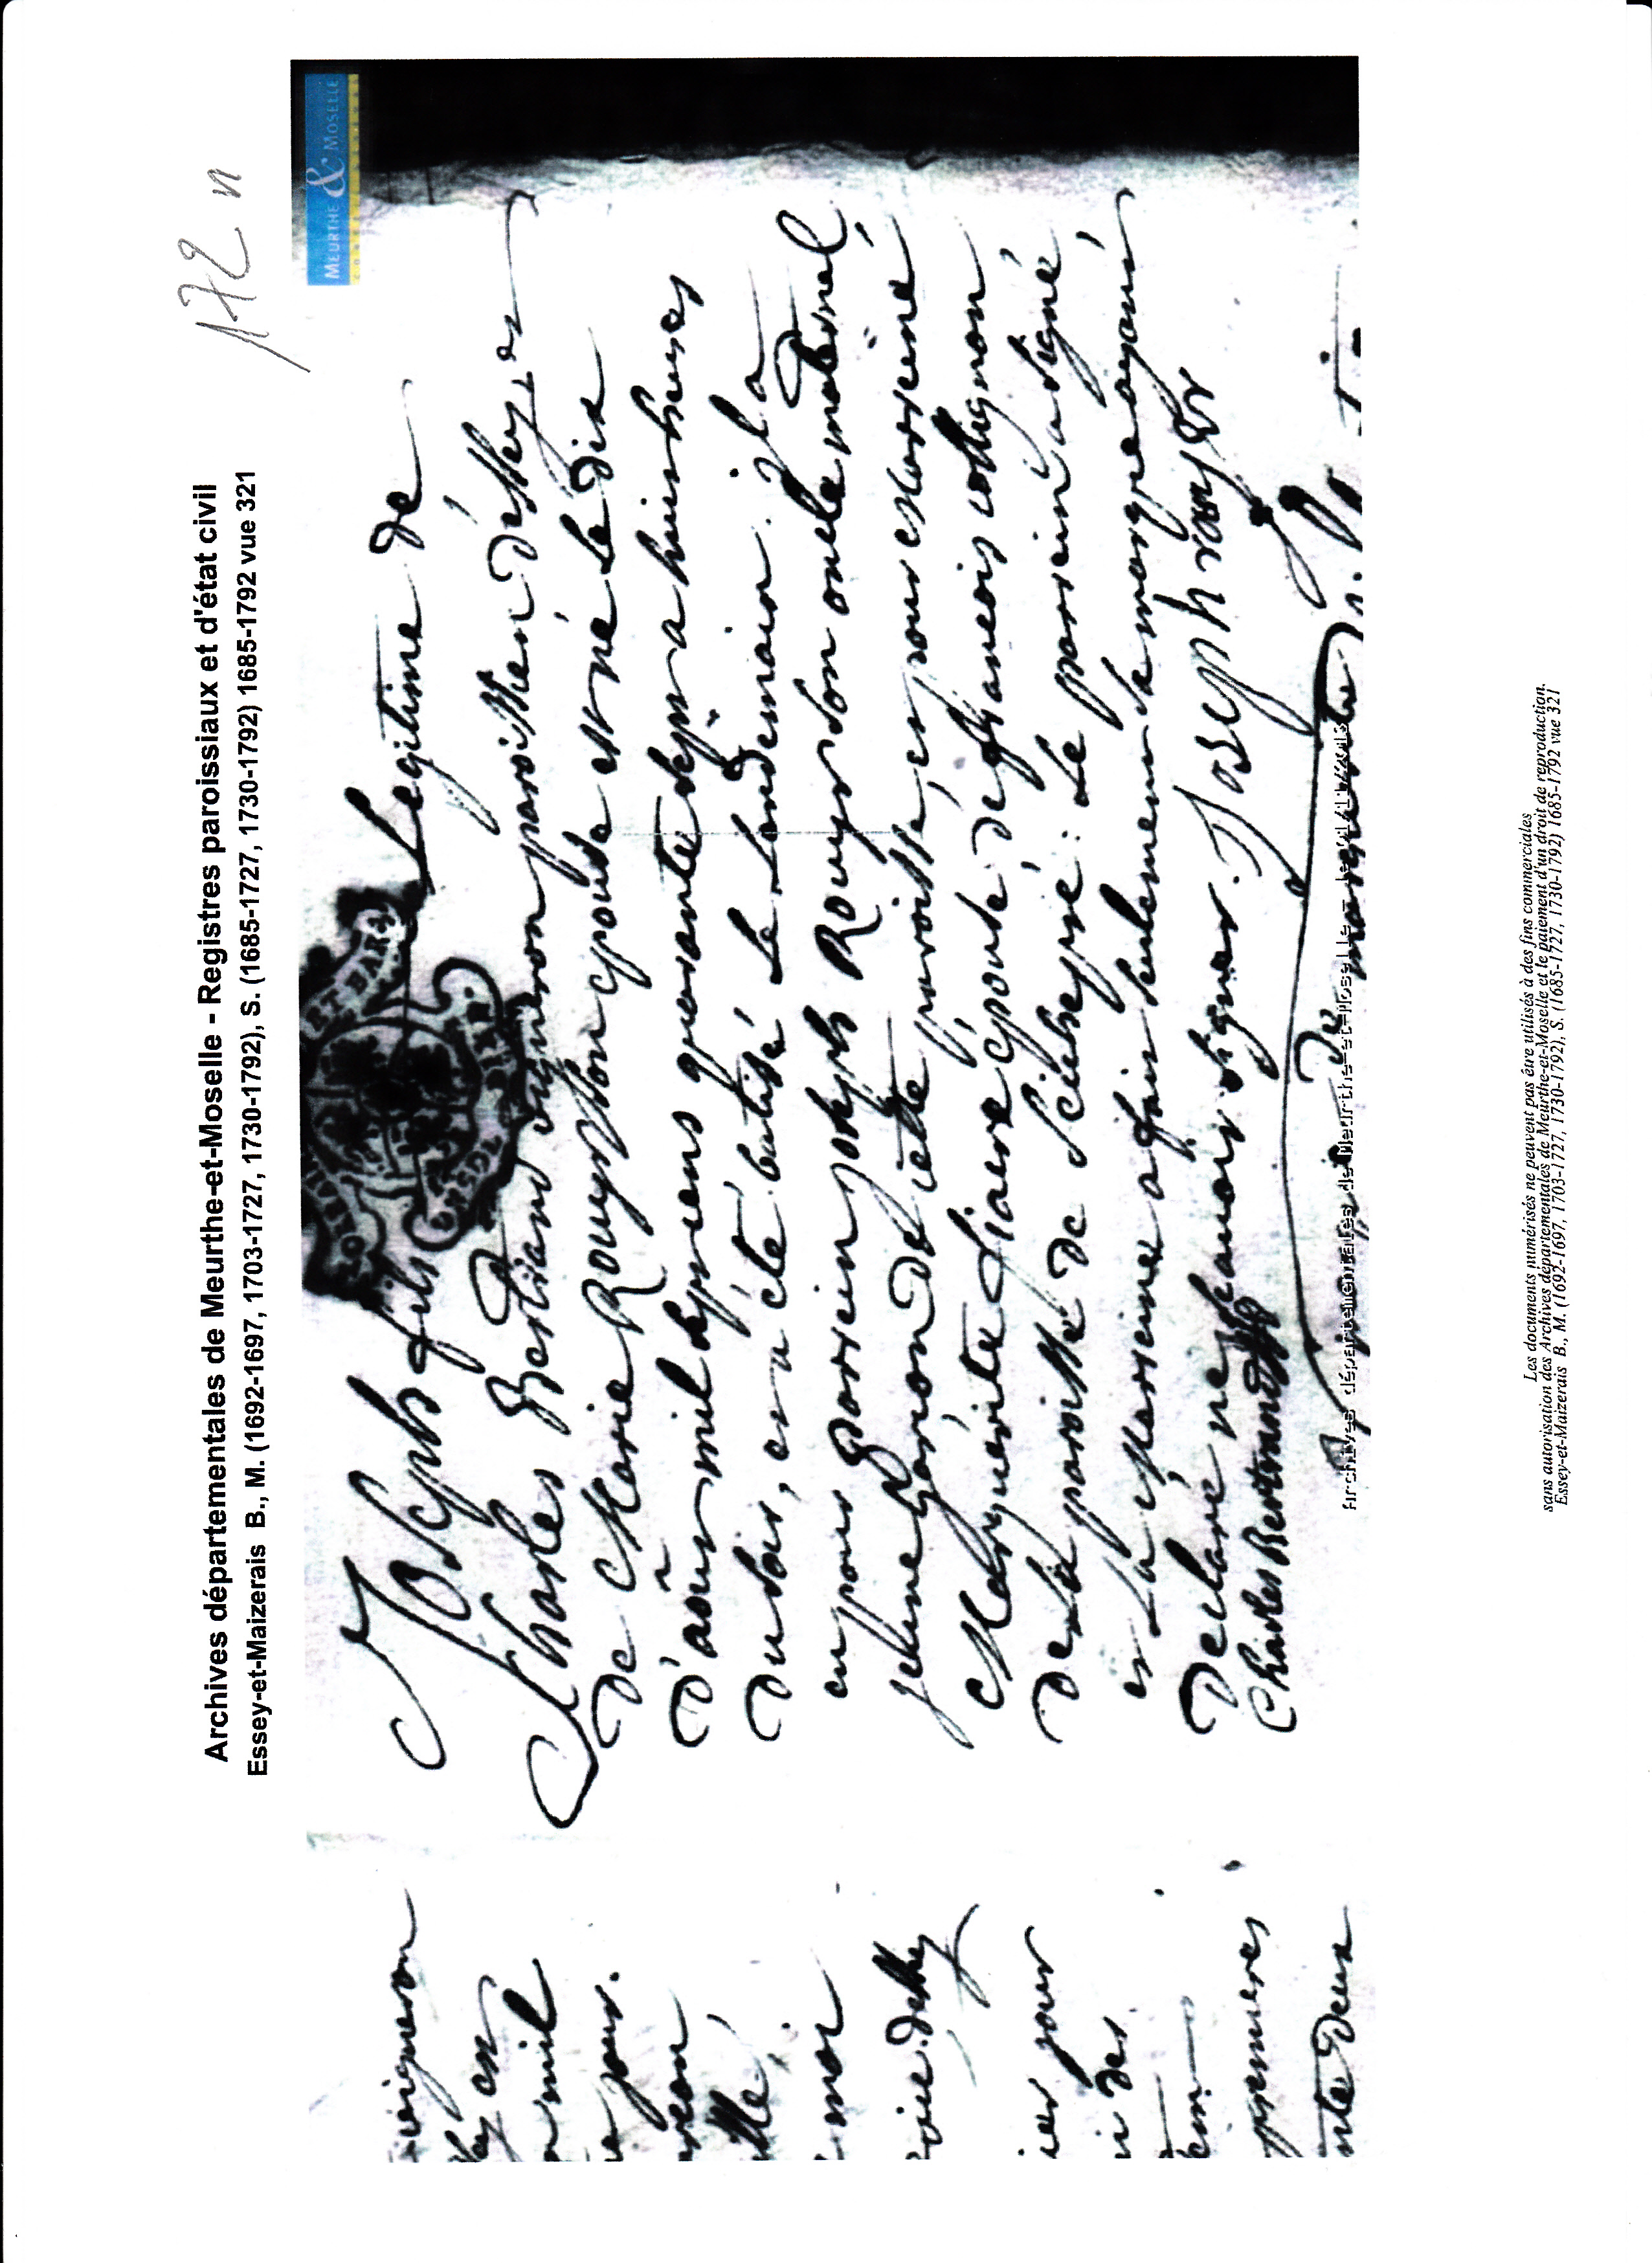 172 n
Archives départementales de Meurthe-et-Moselle - Registres paroissiaux et d'état civil
Essey-et-Maizerais B., M. (1692-1697, 1703-1727, 1730-1792), S. (1685-1727, 1730-1792) 1685-1792 vue 321
MEURTHE & MOSELLE
Joseph fils Legitime de
Charles Bertrand vigneron paroissien d'essey, et
De Marie Rouyer son epouse est né le dix
D'aout mil sept cens quarante sept a huit heures
Du soir, et a été batisé le Lendemain. il a
eu pour parein joseph Rouyer son oncle maternel
jeune garçon de cette paroisse, et pour mareine
Marguérite epouse de françois collignon
De la paroisse de : Le parein a signé
et la mareine a fait seulement sa marque ayant
Declaré ne scauoir signer. Joseph rouyer
Charles Bertrand
Archives départementales de Meurthe-et-Moselle - Le
vigneron
ey et
mil
jour.

mar
essey
ier jour
i des

premieres
nte Deux
Les documents numérisés ne peuvent pas être utilisés à des fins commerciales
sans autorisation des Archives départementales de Meurthe-et-Moselle et le paiement d'un droit de reproduction.
Essey-et-Maizerais B., M. (1692-1697, 1703-1727, 1730-1792), S. (1685-1727, 1730-1792) 1685-1792 vue 321